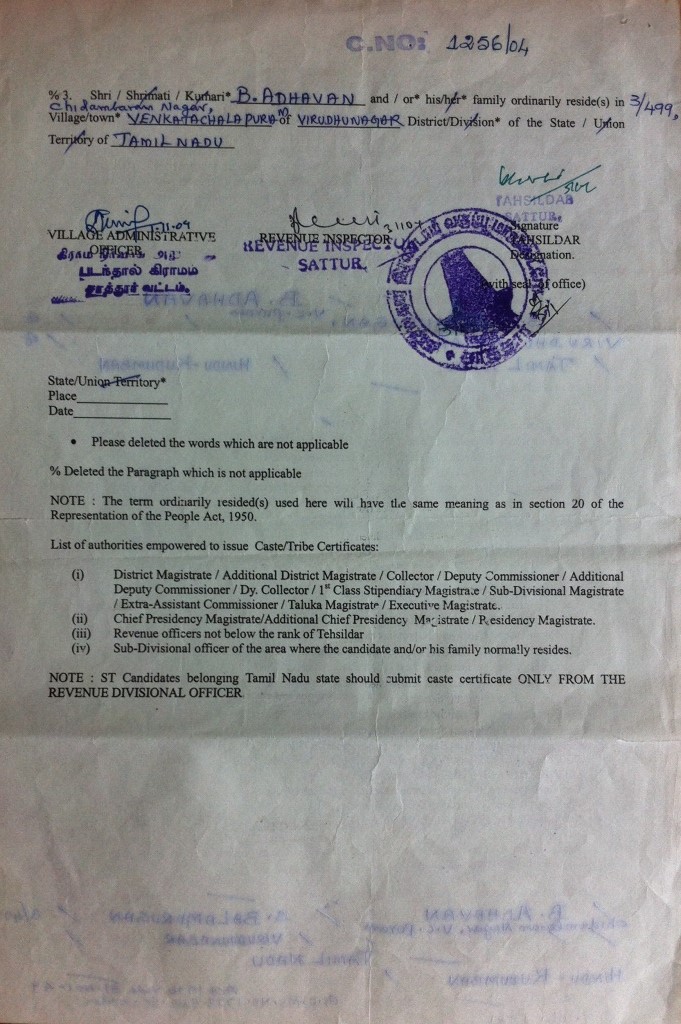 C.NO: 1256/04
% 3. Shri / Shrimati / Kumari* B. ADHAVAN and / or* his/her* family ordinarily reside(s) in 3/499,
Chidambaram Nagar,
Village/town* VENKATACHALAPURAM of VIRUDHUNAGAR District/Division* of the State / Union
Territory of TAMIL NADU
TAHSILDAR
SATTUR.
Signature
VILLAGE ADMINISTRATIVE
OFFICER
REVENUE INSPECTOR
TAHSILDAR
Designation.
REVENUE INSPECTOR
SATTUR.
கிராம நிர்வாக
படந்தால் கிராமம்
சாத்தூர் வட்டம்.
(with seal of office)
State/Union Territory*
Place
Date
• Please deleted the words which are not applicable
% Deleted the Paragraph which is not applicable
NOTE : The term ordinarily resided(s) used here will have the same meaning as in section 20 of the
Representation of the People Act, 1950.
List of authorities empowered to issue Caste/Tribe Certificates:
(i) District Magistrate / Additional District Magistrate / Collector / Deputy Commissioner / Additional
Deputy Commissioner / Dy. Collector / 1st Class Stipendiary Magistrate / Sub-Divisional Magistrate
/ Extra-Assistant Commissioner / Taluka Magistrate / Executive Magistrate.
(ii) Chief Presidency Magistrate/Additional Chief Presidency Magistrate / Presidency Magistrate.
(iii) Revenue officers not below the rank of Tehsildar
(iv) Sub-Divisional officer of the area where the candidate and/or his family normally resides.
NOTE : ST Candidates belonging Tamil Nadu state should submit caste certificate ONLY FROM THE
REVENUE DIVISIONAL OFFICER